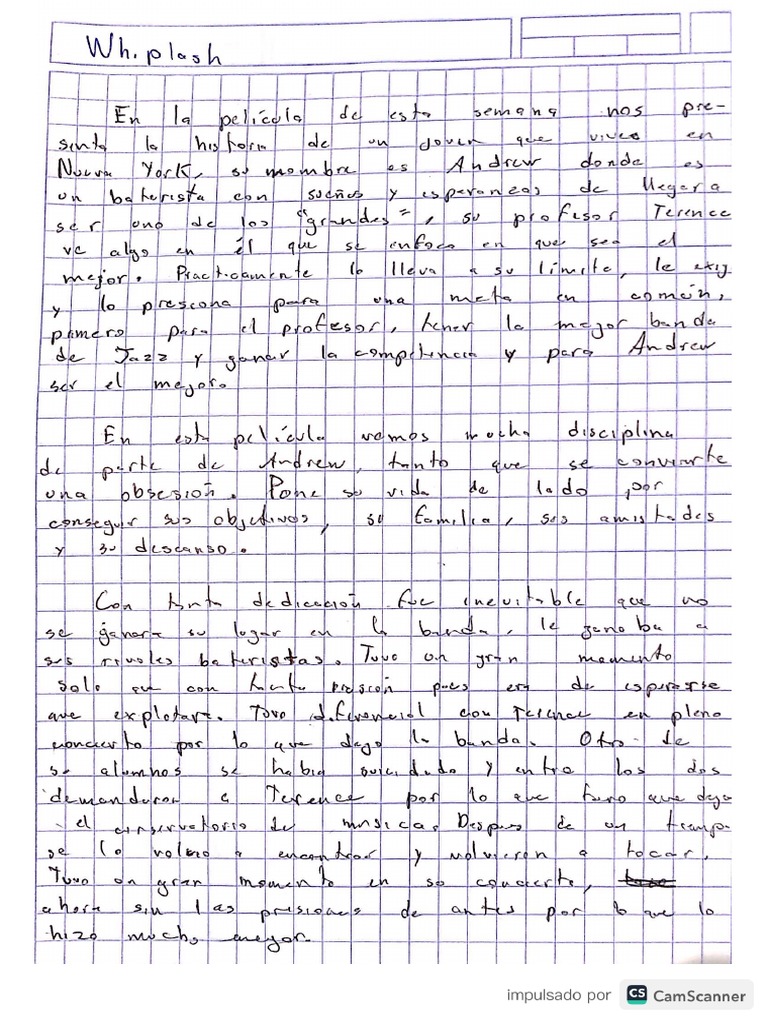 Whiplash
En la película de esta semana nos pre-
senta la historia de un joven que vive en
Nueva York, su nombre es Andrew donde es
un baterista con sueños y esperanzas de llegar a
ser uno de los "grandes", su profesor Terence
ve algo en él que se enfoca en que sea el
mejor. Practicamente lo lleva a su límite, le exig
y lo presiona para una meta en común,
primero para el profesor, tener la mejor banda
de Jazz y ganar la competencia y para Andrew
ser el mejor.
En esta película vemos mucha disciplina
de parte de Andrew, tanto que se convierte
una obsesión. Pone su vida de lado por
conseguir sus objetivos, su familia, sus amistades
y su descanso.
Con tanta dedicación fue inevitable que no
se ganara su lugar en la banda, le ganaba a
sus rivales bateristas. Tuvo un gran momento
solo que con tanta presión pues era de esperarse
que explotara. Tuvo diferencial con Terence en pleno
concierto por lo que dejo la banda. Otro de
su alumnos se habia suicidado y entre los dos
demandaron a Terence por lo que tuvo que deja
el conservatorio de musica. Despues de un tiempo
se lo volvio a encontrar y volvieron a tocar,
Tuvo un gran momento en su concierto,
ahora sin las presiones de antes por lo que lo
hizo mucho mejor.
impulsado por CS CamScanner